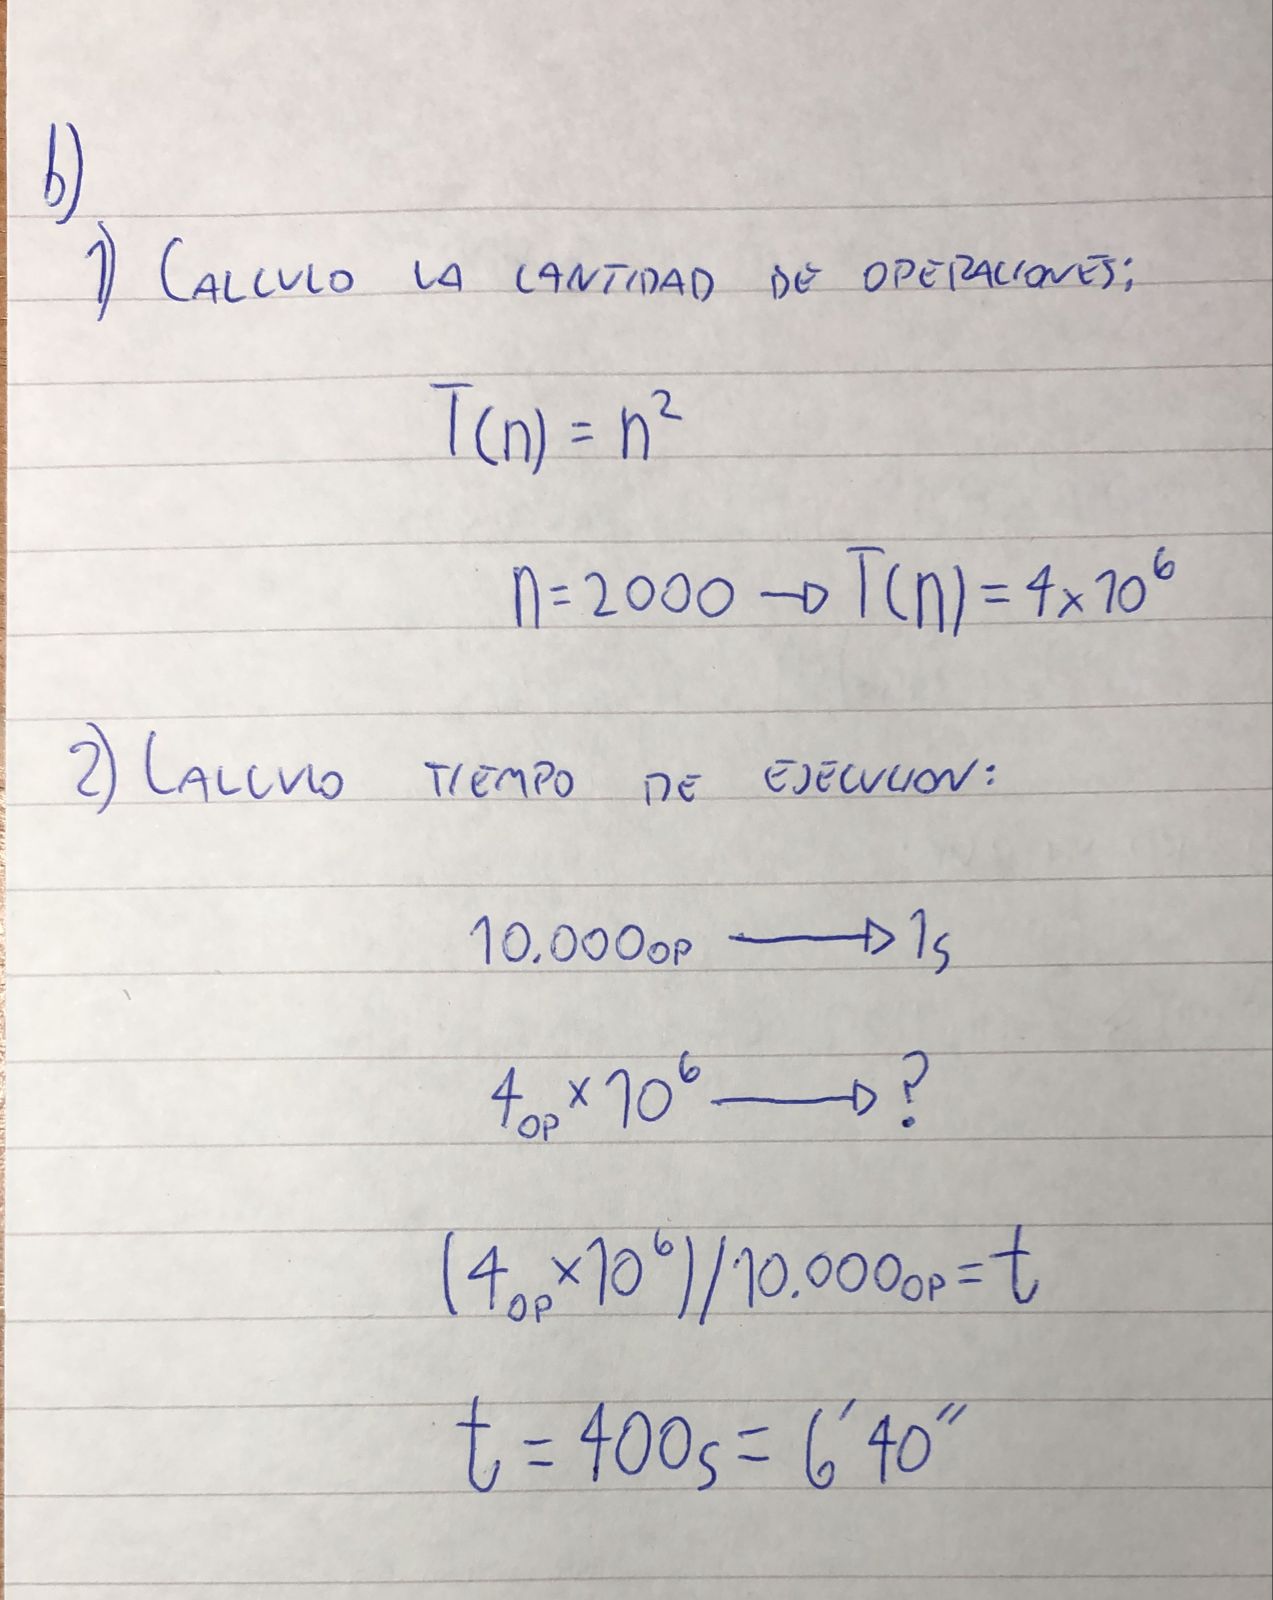 b)
1) CALCULO LA CANTIDAD DE OPERACIONES:
T(n) = n²
n = 2000 → T(n) = 4 x 10⁶
2) CALCULO TIEMPO DE EJECUCION:
10.000 op → 1s
4 op x 10⁶ → ?
(4 op x 10⁶) / 10.000 op = t
t = 400s = 6' 40"